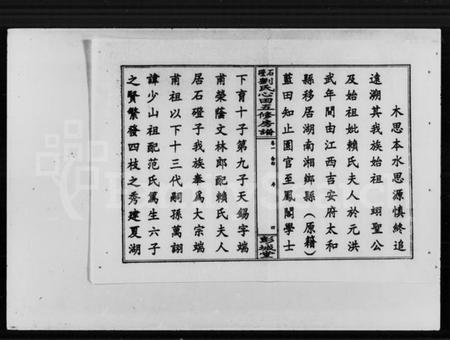 木思本水思源慎終追
遠溯其我族始祖　翊聖公
及始祖妣賴氏夫人於元洪
武年間由江西吉安府太和
縣移居湖南湘鄉縣（原籍）
藍田知止園官至鳳閣學士
石磴劉氏心田五修房譜
卷一
序
四
彭城堂
下育十子第九子天錫字端
甫榮蔭文林郎配賴氏夫人
居石磴子我族奉為大宗端
甫祖以下十三代嗣孫萬詡
諱少山祖配范氏篤生六子
之賢繁發四枝之秀建夏湖